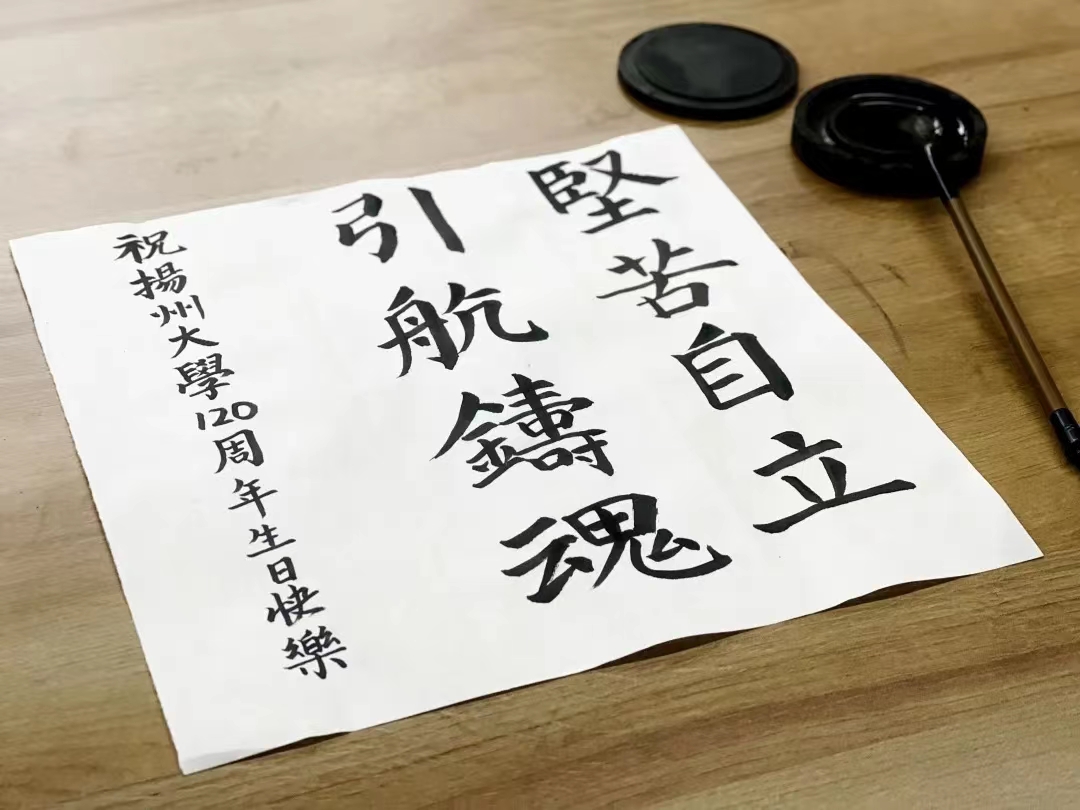 堅苦自立
引航鑄魂
祝揚州大學120周年生日快樂